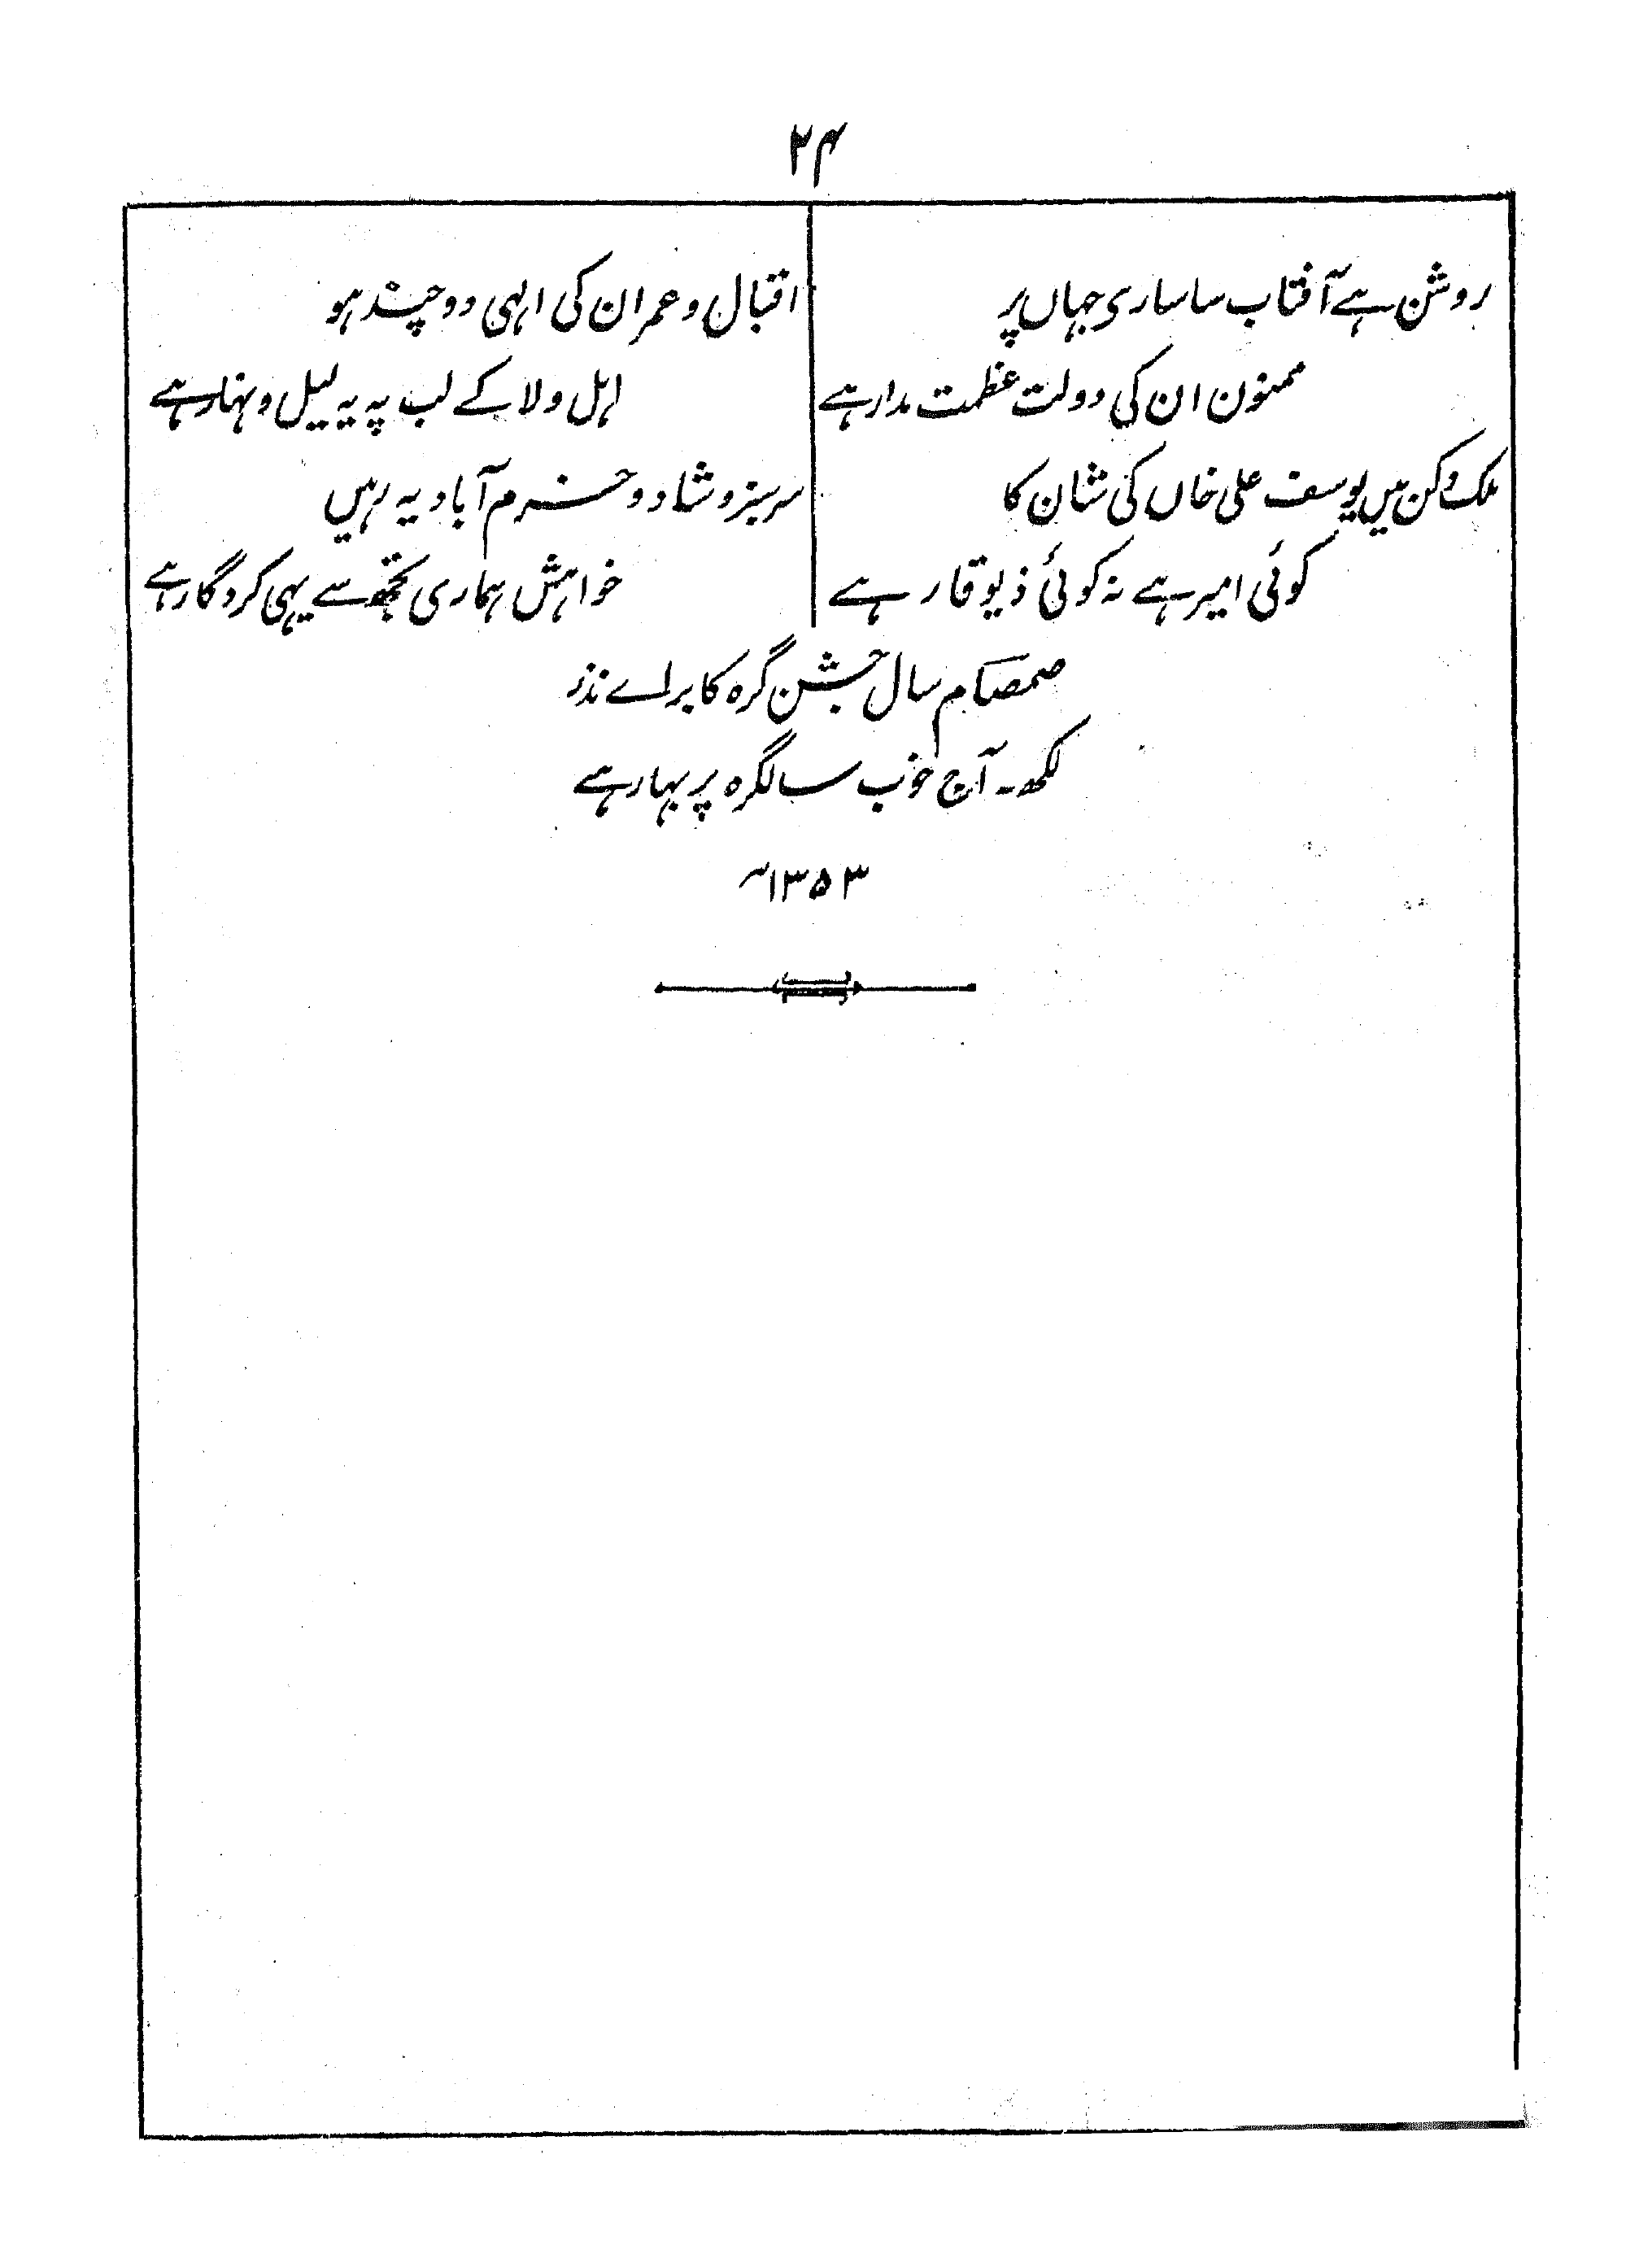 ۲۴
روشن ہے آفتاب سا ساری جہاں پر
ممنون ان کی دولت عظمت مدار ہے
ملک دکن میں یوسف علی خاں کی شان کا
کوئی امیر ہے نہ کوئی ذیوقار ہے
اقبال و عمر ان کی الہی دو چند ہو
اہل ولا کے لب پہ یہ لیل و نہار ہے
سرسبز و شاد و خرم آباد یہ رہیں
خواہش ہماری تجھ سے یہی کردگار ہے
صمصام سال جشن گرہ کا براے نذر
لکھ ۔ آج خوب سالگرہ پر بہار ہے
۱۳۵۳